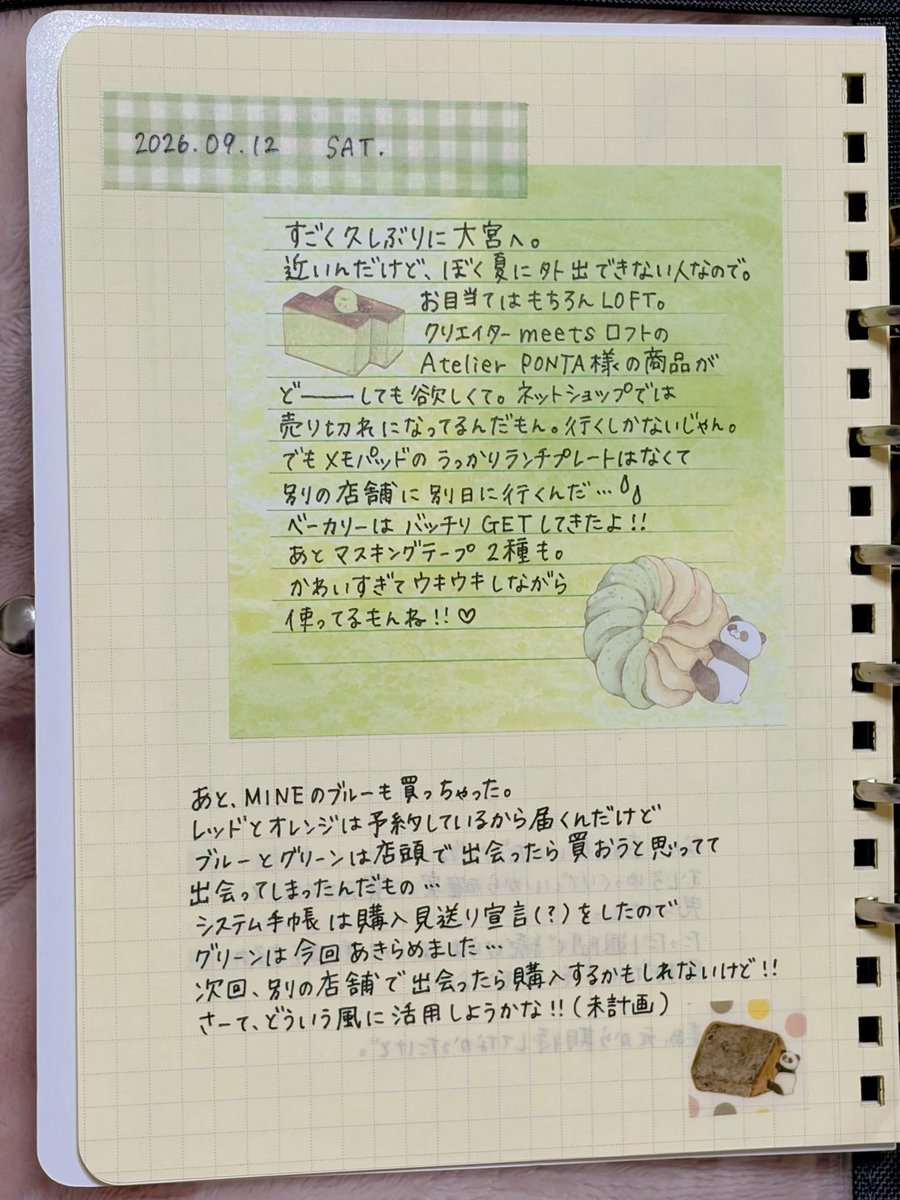 2026.09.12 SAT.
すごく久しぶりに大宮へ。
近いんだけど、ぼく夏に外出できない人なので。
お目当てはもちろんLOFT。
クリエイターmeetsロフトの
Atelier PONTA様の商品が
ど――しても欲しくて。ネットショップでは
売り切れになってるんだもん。行くしかないじゃん。
でもメモパッドのうっかりランチプレートはなくて
別の店舗に別日に行くんだ…
ベーカリーはバッチリGETしてきたよ!!
あとマスキングテープ2種も。
かわいすぎてウキウキしながら
使ってるもんね!!♡
あと、MINEのブルーも買っちゃった。
レッドとオレンジは予約しているから届くんだけど
ブルーとグリーンは店頭で出会ったら買おうと思ってて
出会ってしまったんだもの…
システム手帳は購入見送り宣言(?)をしたので
グリーンは今回あきらめました…
次回、別の店舗で出会ったら購入するかもしれないけど!!
さーて、どういう風に活用しようかな!!(未計画)